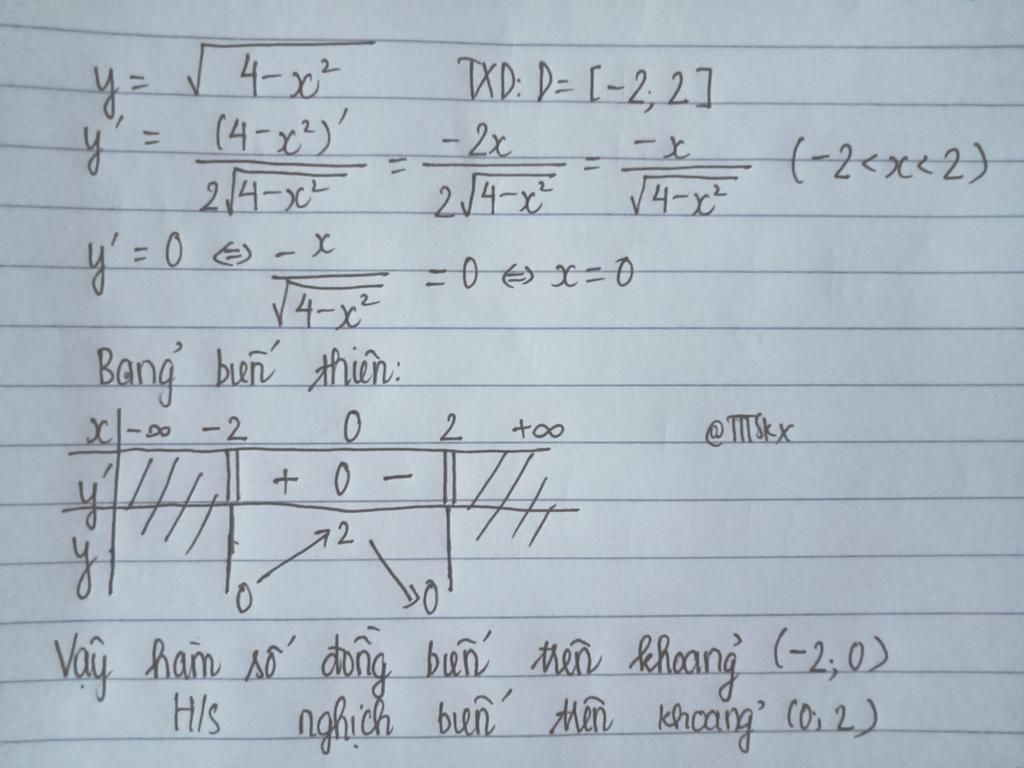 y = √(4-x²) TXD: D= [-2; 2]
y' = (4-x²)' / 2√(4-x²) = -2x / 2√(4-x²) = -x / √(4-x²) (-2<x<2)
y' = 0 ⇔ -x / √(4-x²) = 0 ⇔ x = 0
Bảng biến thiên:
x -∞ -2 0 2 +∞
@TTTSkx
y' + 0 -
y 0 2 0
Vậy hàm số đồng biến trên khoảng (-2; 0)
H/s nghịch biến trên khoảng (0; 2)